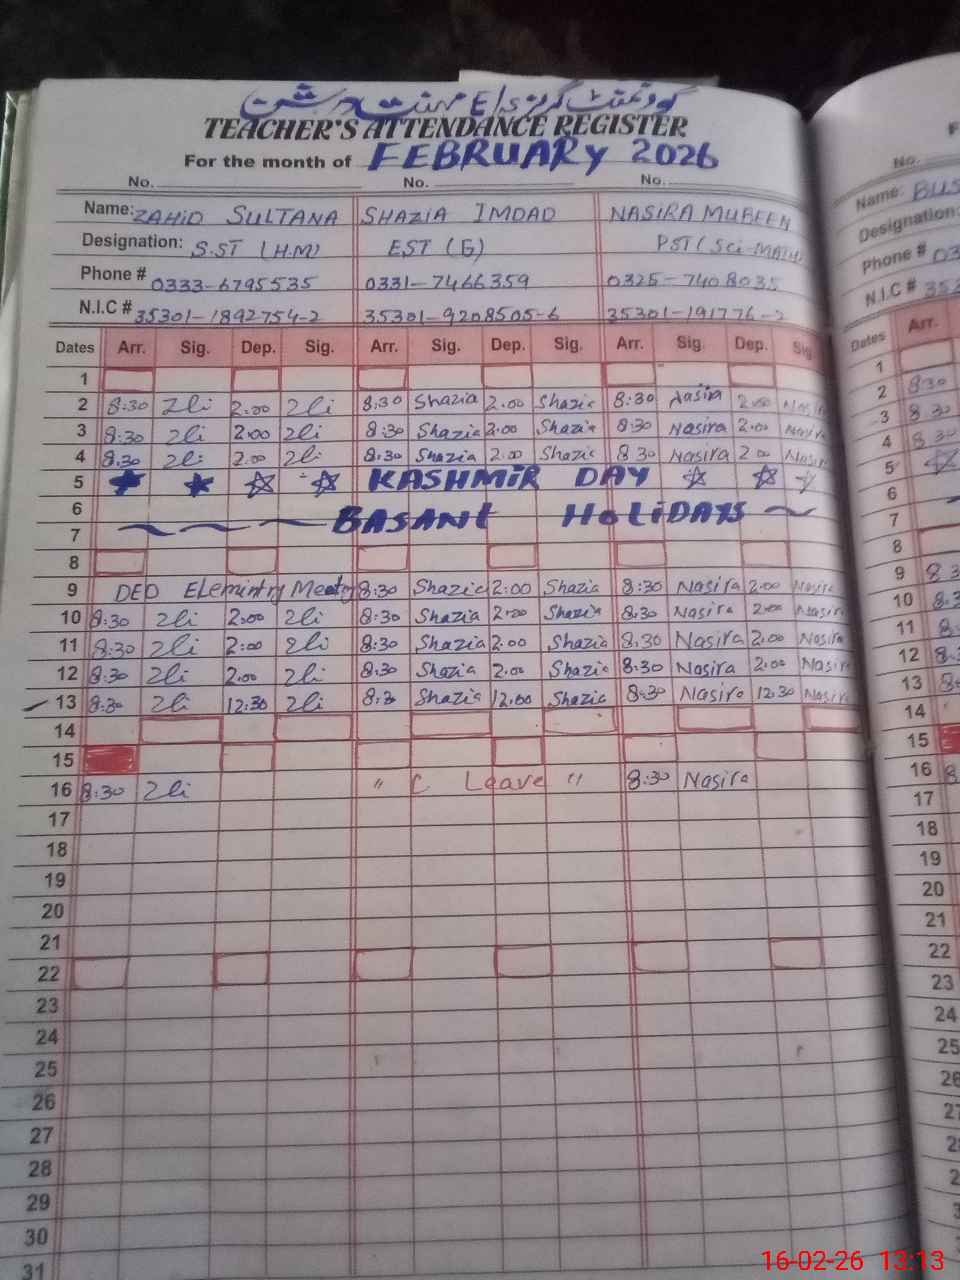 گورنمنٹ گرلز E/S مہنت درشن
TEACHER'S ATTENDANCE REGISTER
For the month of FEBRUARY 2026
No. No. No.
Name: ZAHID SULTANA SHAZIA IMDAD NASIRA MUBEEN
Designation: S.ST (H.M) EST (G) PST (Sci-MATH)
Phone # 0333-6795535 0331-7466359 0325-7408035
N.I.C # 35301-1892754-2 35301-9208505-6 35301-191776-2
Dates Arr. Sig. Dep. Sig. Arr. Sig. Dep. Sig. Arr. Sig. Dep. Sig
1
2 8:30 2.00 8:30 Shazia 2.00 Shazia 8:30 Nasira 2.00 Nasira
3 8:30 2:00 8:30 Shazia 2:00 Shazia 8:30 Nasira 2.00 Nasira
4 8:30 2:00 8:30 Shazia 2:00 Shazia 8 30 Nasira 2 00 Nasira
5 KASHMIR DAY
6 BASANT HOLIDAYS
7
8
9 DEO Elemintry Meeting 8:30 Shazia 2:00 Shazia 8:30 Nasira 2.00 Nasira
10 8:30 2:00 8:30 Shazia 2:00 Shazia 8:30 Nasira 2.00 Nasira
11 8:30 2:00 8:30 Shazia 2.00 Shazia 8.30 Nasira 2.00 Nasira
12 8:30 2.00 8:30 Shazia 2.00 Shazia 8:30 Nasira 2.00 Nasira
13 8:30 12:30 8:3 Shazia 12.00 Shazia 8:30 Nasira 12.30 Nasira
14
15
16 8:30 " C Leave " 8:30 Nasira
17
18
19
20
21
22
23
24
25
26
27
28
29
30
31
F
No.
Name: BUS
Designation:
Phone # 03
N.I.C # 353
Dates Arr.
1
2 8 30
3 8 30
4 8 30
5
6
7
8
9 8 3
10 8:3
11 8
12 8:3
13 8
14
15
16 8
17
18
19
20
21
22
23
24
25
26
16-02-26 13:13